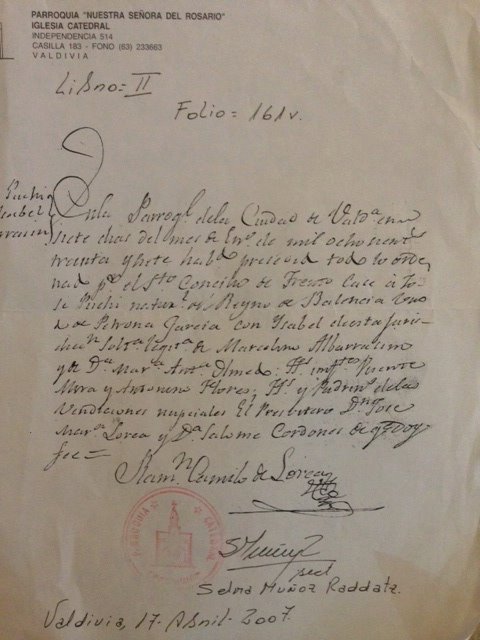 PARROQUIA "NUESTRA SEÑORA DEL ROSARIO"
IGLESIA CATEDRAL
INDEPENDENCIA 514
CASILLA 183 - FONO (63) 233663
VALDIVIA
Libro = II
Folio = 161v.
Puchi
Isabel
En la Parroql. dela Ciudad de Valda. en
siete dias del mes de Eno. de mil ocho sient
treinta y siete habd. preseved todo lo orde
nad pr. el Sto. Concilio de Trento Case à Jo-
se Puchi natural del Reyno de Balencia
de Petrona Garcia con Isabel de esta juris-
diccn. Solta. legita. de Marcelino Albarrasin
y de Da. Mara. Anta. Olmed: Ts.
Mora y Antonino Flores; Ts. y Padrins. de las
Vendiciones nupciales El Presbitero Dn. Jose
Mara. Lorca y Da. Salome Cordones de q. doy
fee =
Ramn. Camilo de Lorca
PARROQUIA CATEDRAL
SMuñoz
Selma Muñoz Raddatz.
Valdivia, 17. Abril. 2007.